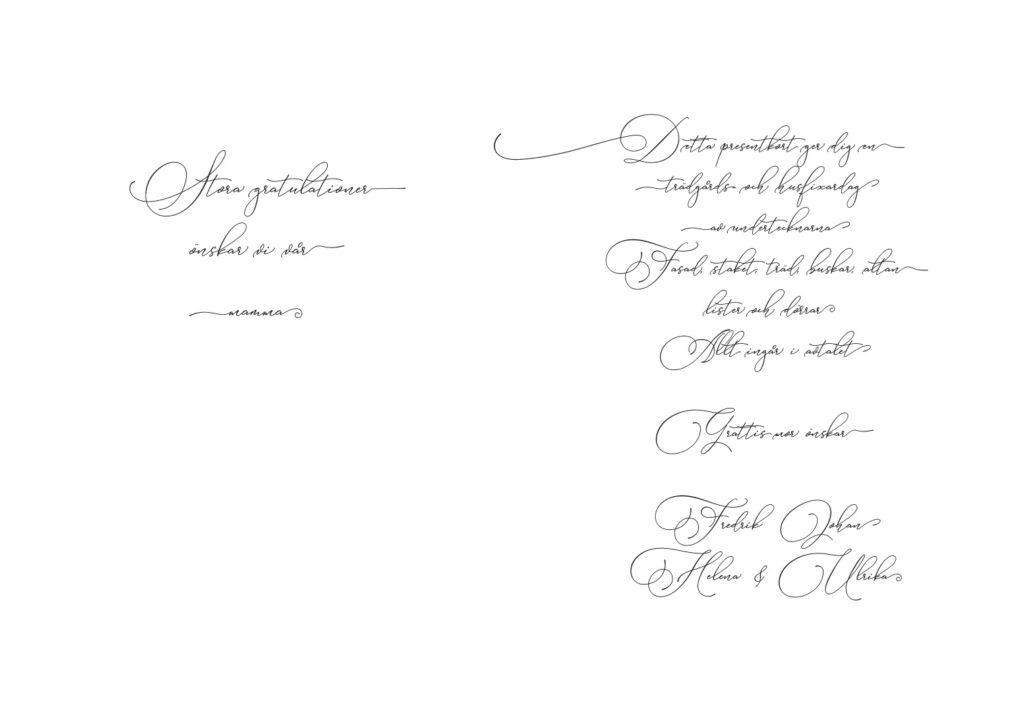 Stora gratulationer
önskar vi vår
mamma
Detta presentkort ger dig en
trädgårds- och husfixardag
av undertecknarna
Fasad, staket, träd, buskar, altan
lister och dörrar
Allt ingår i avtalet
Grattis mor önskar
Fredrik Johan
Helena & Ulrika